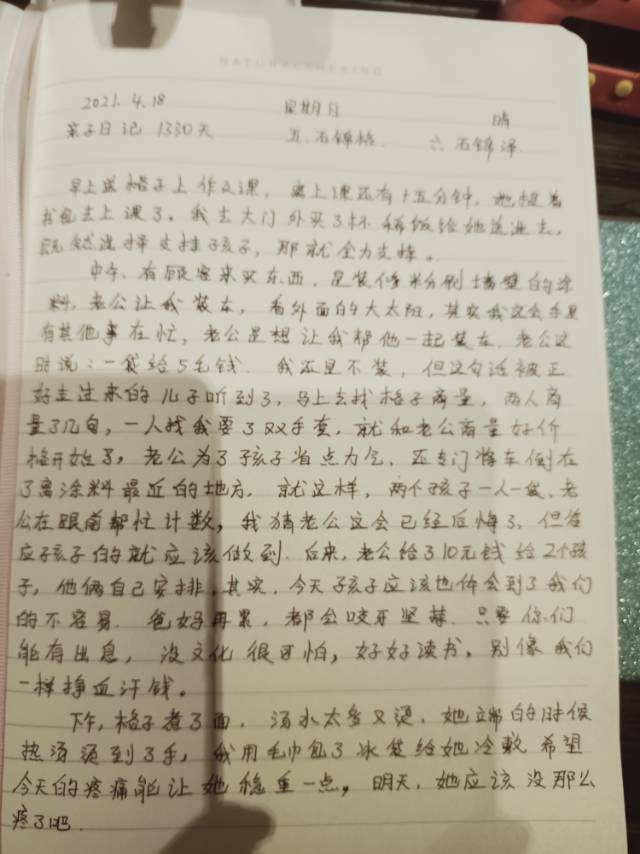 NATURAL
2021. 4. 18 星期日 晴
亲子日记 1330天 五.石锦格. 六.石锦泽
早上送格子上作文课，离上课还有十五分钟，她提着
书包去上课了，我去大门外买了杯稀饭给她送进去，
既然选择支持孩子，那就全力支持。
中午，有顾客来买东西，是装修粉刷墙壁的涂
料，老公让我装车，看外面的大太阳，其实我这会手里
有其他事在忙，老公是想让我帮他一起装车.老公这
时说：一袋给5毛钱.我还是不装，但这句话被正
好走过来的儿子听到了，马上去找格子商量，两人商
量了几句，一人找我要了双手套，就和老公商量好价
格开始了，老公为了孩子省点力气，还专门将车倒在
了离涂料最近的地方，就这样，两个孩子一人一袋，老
公在跟前帮忙计数，我猜老公这会已经后悔了，但答
应孩子的就应该做到.后来，老公给了10元钱给2个孩
子，他俩自己安排，其实，今天孩子应该也体会到了我们
的不容易.爸妈再累，都会咬牙坚持.只要你们
能有出息，没文化很可怕，好好读书，别像我们
一样挣血汗钱。
下午，格子煮了面，汤水太多又烫，她端的时候
热汤烫到了手，我用毛巾包了冰袋给她冷敷.希望
今天的疼痛能让她稳重一点，明天，她应该没那么
疼了吧.